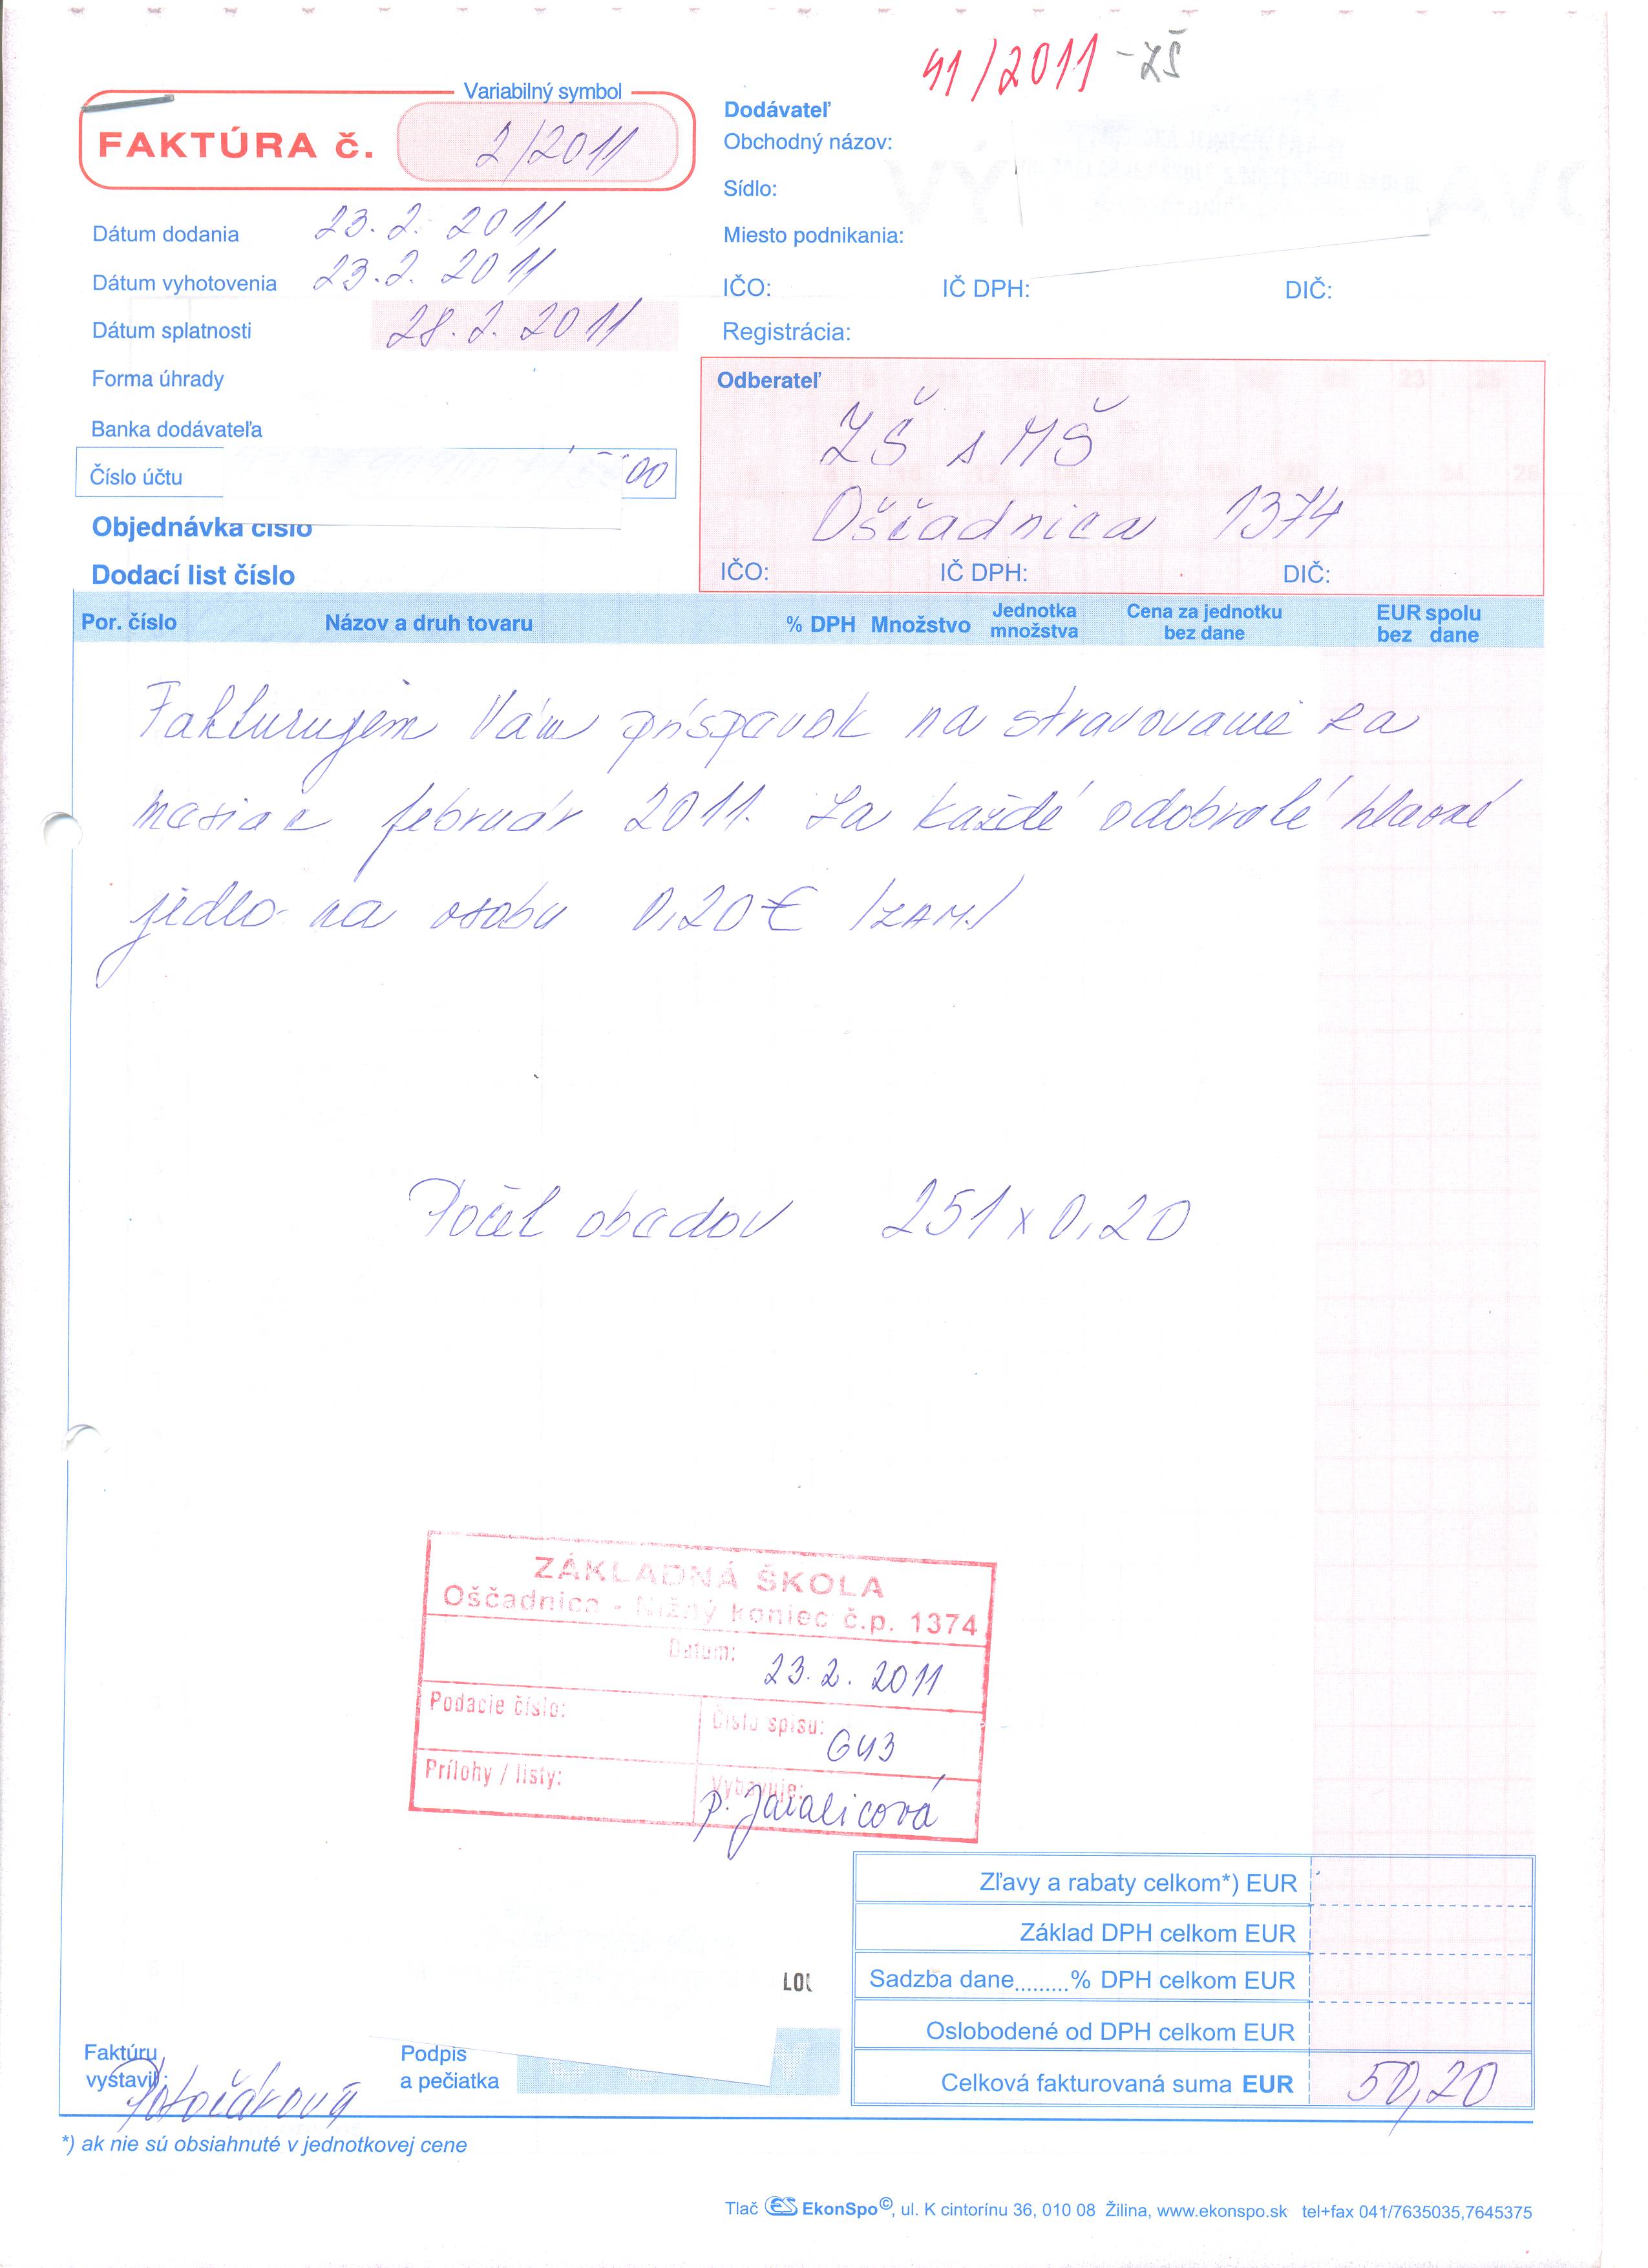 41/2011 - ZŠ
Variabilný symbol
FAKTÚRA č. 2/2011
Dátum dodania 23. 2. 2011
Dátum vyhotovenia 23. 2. 2011
Dátum splatnosti 28. 2. 2011
Forma úhrady
Banka dodávateľa
Číslo účtu 00
Objednávka číslo
Dodací list číslo
Dodávateľ
Obchodný názov:
Sídlo:
Miesto podnikania:
IČO: IČ DPH: DIČ:
Registrácia:
Odberateľ
ZŠ s MŠ
Oščadnica 1374
IČO: IČ DPH: DIČ:
Por. číslo Názov a druh tovaru % DPH Množstvo Jednotka množstva Cena za jednotku bez dane EUR spolu bez dane
Fakturujem Vám príspevok na stravovanie za
mesiac február 2011. Za každé odobraté hlavné
jedlo na osobu 0,20€ /ZAM./
Počet obedov 251 x 0,20
ZÁKLADNÁ ŠKOLA
Oščadnica - Nižný koniec č.p. 1374
Datum: 23. 2. 2011
Podacie číslo: Číslo spisu: 643
Prílohy / listy: Vybavuje: p.
Zľavy a rabaty celkom*) EUR
Základ DPH celkom EUR
LOU
Sadzba dane.........% DPH celkom EUR
Oslobodené od DPH celkom EUR
Celková fakturovaná suma EUR 50,20
Faktúru vystavil:
Podpis a pečiatka
*) ak nie sú obsiahnuté v jednotkovej cene
Tlač ES EkonSpo©, ul. K cintorínu 36, 010 08 Žilina, www.ekonspo.sk tel+fax 041/7635035,7645375